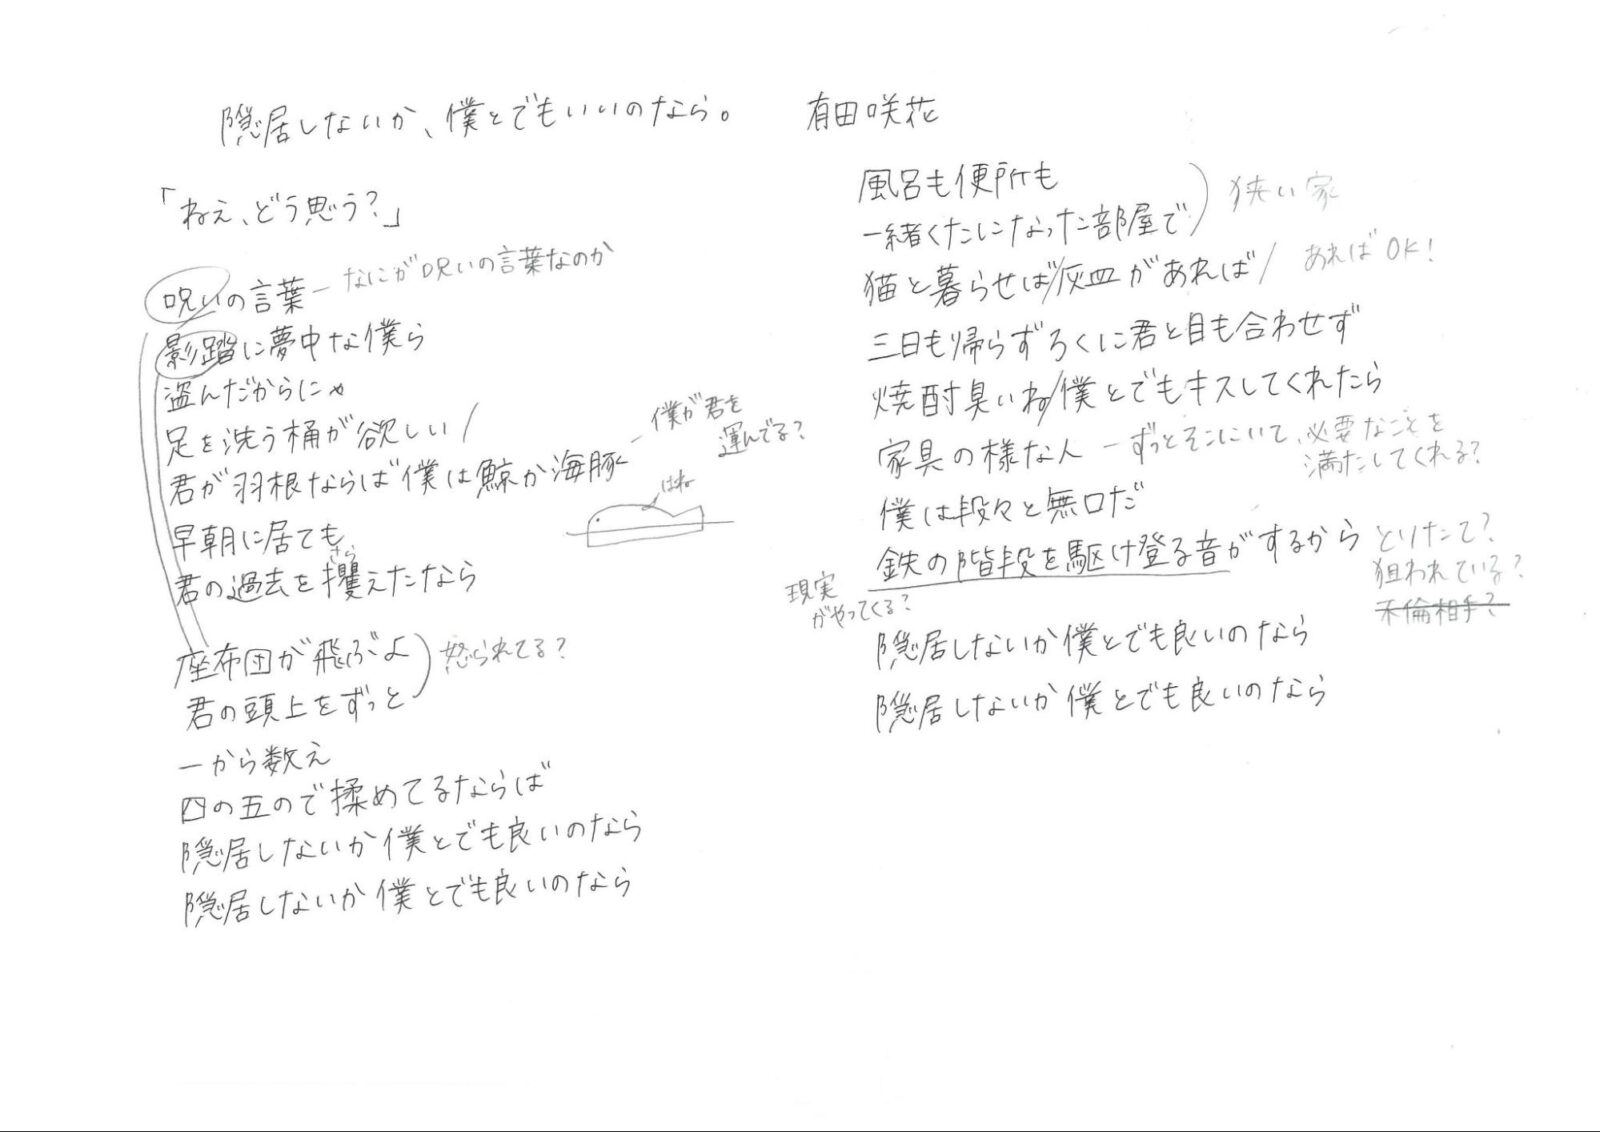 隠居しないか、僕とでもいいのなら。
有田咲花
「ねえ、どう思う?」
呪いの言葉 — なにが呪いの言葉なのか
影踏に夢中な僕ら
盗んだからにゃ
足を洗う桶が欲しい/
君が羽根ならば僕は鯨か海豚 — 僕が君を
運んでる?
はね
早朝に居ても
さら
君の過去を攫えたなら
座布団が飛ぶよ
君の頭上をずっと
怒られてる?
一から数え
四の五ので揉めてるならば
隠居しないか僕とでも良いのなら
隠居しないか僕とでも良いのなら
風呂も便所も
一緒くたになった部屋で
狭い家
猫と暮らせば/灰皿があれば/ あればOK!
三日も帰らずろくに君と目も合わせず
焼酎臭いね/僕とでもキスしてくれたら
家具の様な人 — ずっとそこにいて、必要なことを
満たしてくれる?
僕は段々と無口だ
鉄の階段を駆け登る音がするから とりたて?
狙われている?
不倫相手?
現実
がやってくる?
隠居しないか僕とでも良いのなら
隠居しないか僕とでも良いのなら